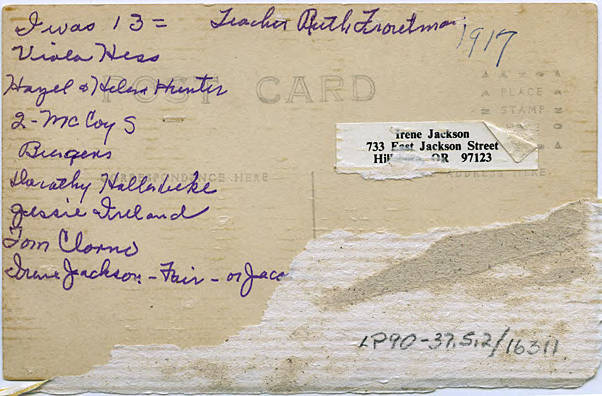 I was 13 = Teacher Ruth Troutman
1917
Viola Hess
Hazel & Helen Hunter
POST CARD
2-McCoy S
Burgens
PLACE
STAMP
Irene Jackson
733 East Jackson Street
Hil OR 97123
CORRESPONDENCE HERE
ADDRESS HERE
Dorathy Hollenbeke
Jessie Ireland
Tom Clorno
Irene Jackson - Fair - or Jac
LP90-37.5.2/16311